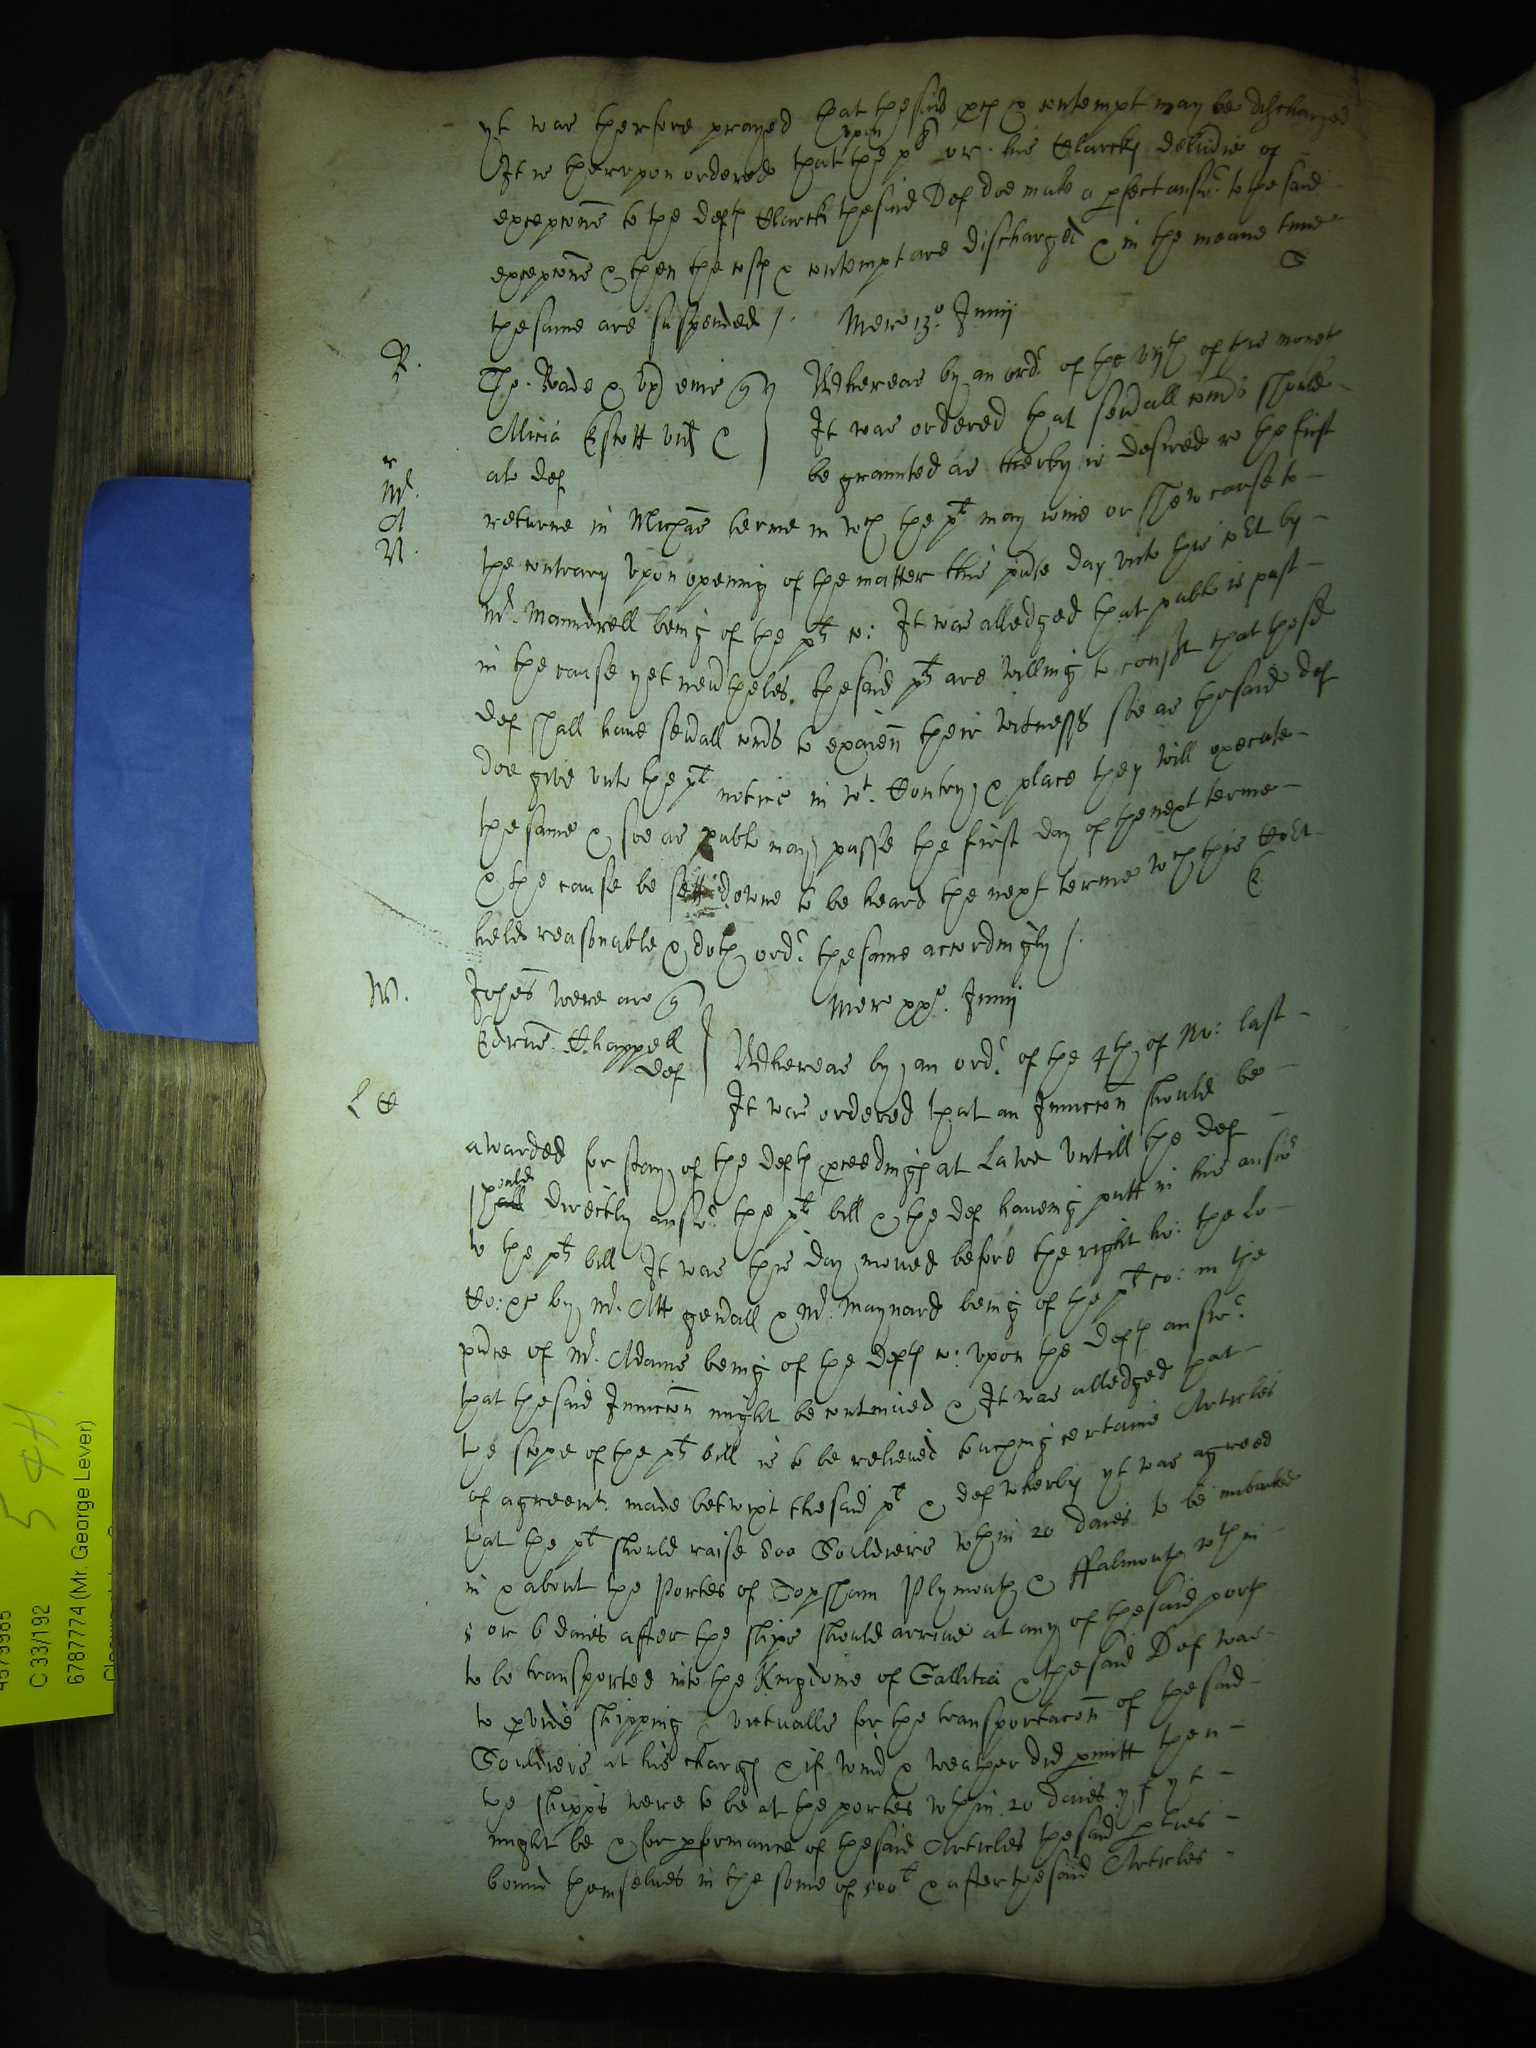 yt was therfore prayed that thesaid & contempt may be discharged
It is therevpon ordered that vpon the plt or his Clarcks deliu'ie of
excepcons to the defts Clarck thesaid Def doe make a p'fect answr. to the said
excepcons & then the & contempt are discharged & in the meane time
the same are suspended /. Merc 13o. Junij
R.
Tho. Wade & vx
Alicia Escott vid &
als def
Whereas by an ordr. of the vijth of this month
It was ordered that seu'all should
be graunted as therby is desired the first
returne in Mich'as terme in wch the plt may ioine or shew cause to
Mr.
A
the contrary Vpon opening of the matter this p'nte day vnto this Cort by
Mr. Maundrell being of the plts co: It was alledged that publc is past
in the cause yet neu'theles. thesaid plts are willing to consent that these
def shall haue seu'all to exaien their witnesses soe as thesaid def
doe giue vnto the plt notice in wt. Contry, & place they will execute
the same & soe as publc may passe the first day of the next terme
& the cause be sett downe to be heard the next terme wch this Cort
held reasonable & doth ordr. the same accordingly /.
W.
Johes Were ar
Chappell
def
Merc xxo. Junij
Whereas by, an ordr. of the 4th of No: last
It was ordered that an Iniuccon should be
awarded for stay, of the defts p'ceedings at Lawe Vntill the def
should directly answr. the plts bill & the def haueing putt in his answr
to the plts bill It was this day, moued before the right ho: the Lo
Co: &c by, Mr. Att gen'all & Mr. Maynard being of the plts co: in the
p'nce of Mr. Adams being of the defts co: vpon the defts answr.
that thesaid Iniuccon might be contenued & It was alledged that
the scope of the plts bill is to be releiued touching certaine Articles
of agreemt. made betwixt thesaid plt & def wherby yt was agreed
that the plt should raise 800 Souldiers wthin 20 daies to be imbarked
in & about the Portes of Topsham Plymouth & ffalmouth wthin
5 or 6 daies after the ships should arriue at any of thesaid ports
to be transported into the Kingdome of Gallitia & thesaid Def was
to p'vide shipping & victualls for the transportacon of the said
Souldiers at his charge & if wind & weather did p'mitt then
the shipps were to be at the portes wthin 20 daies yf yt
might be & for p'formance of thesaid Articles thesaid p'ties
bound themselues in the some of 500l & after thesaid Articles
C 33/192
6787774 (Mr. George Lever)